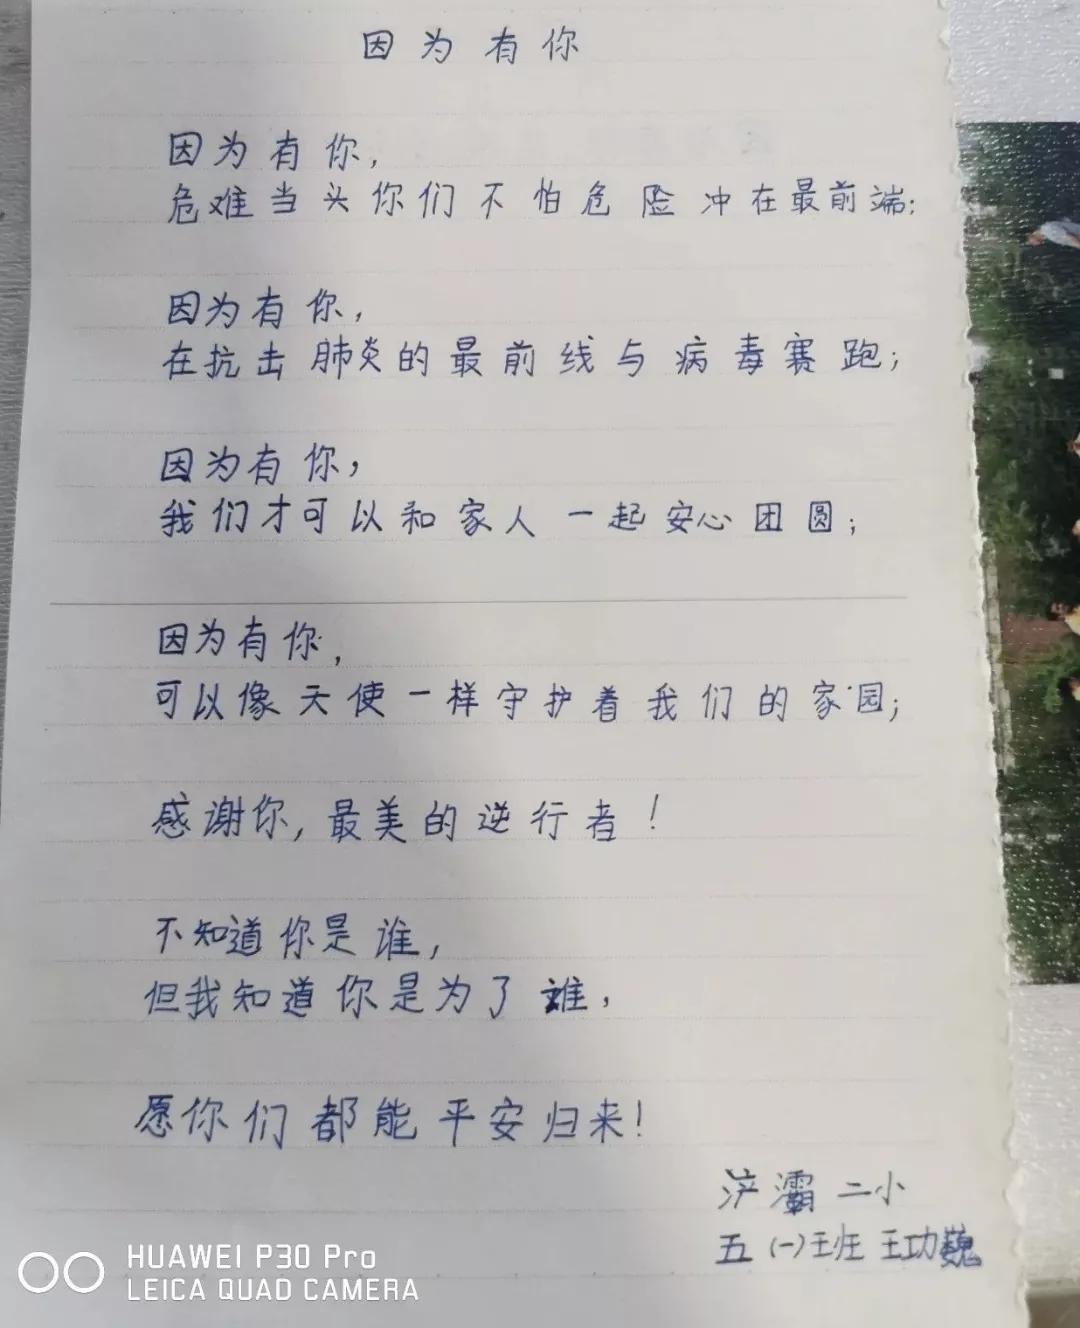 因为有你
因为有你,
危难当头你们不怕危险冲在最前端;
因为有你,
在抗击肺炎的最前线与病毒赛跑;
因为有你,
我们才可以和家人一起安心团圆;
因为有你,
可以像天使一样守护着我们的家园;
感谢你,最美的逆行者!
不知道你是谁,
但我知道你是为了谁,
愿你们都能平安归来!
浐灞二小
五(一)班 王功巍
HUAWEI P30 Pro
LEICA QUAD CAMERA